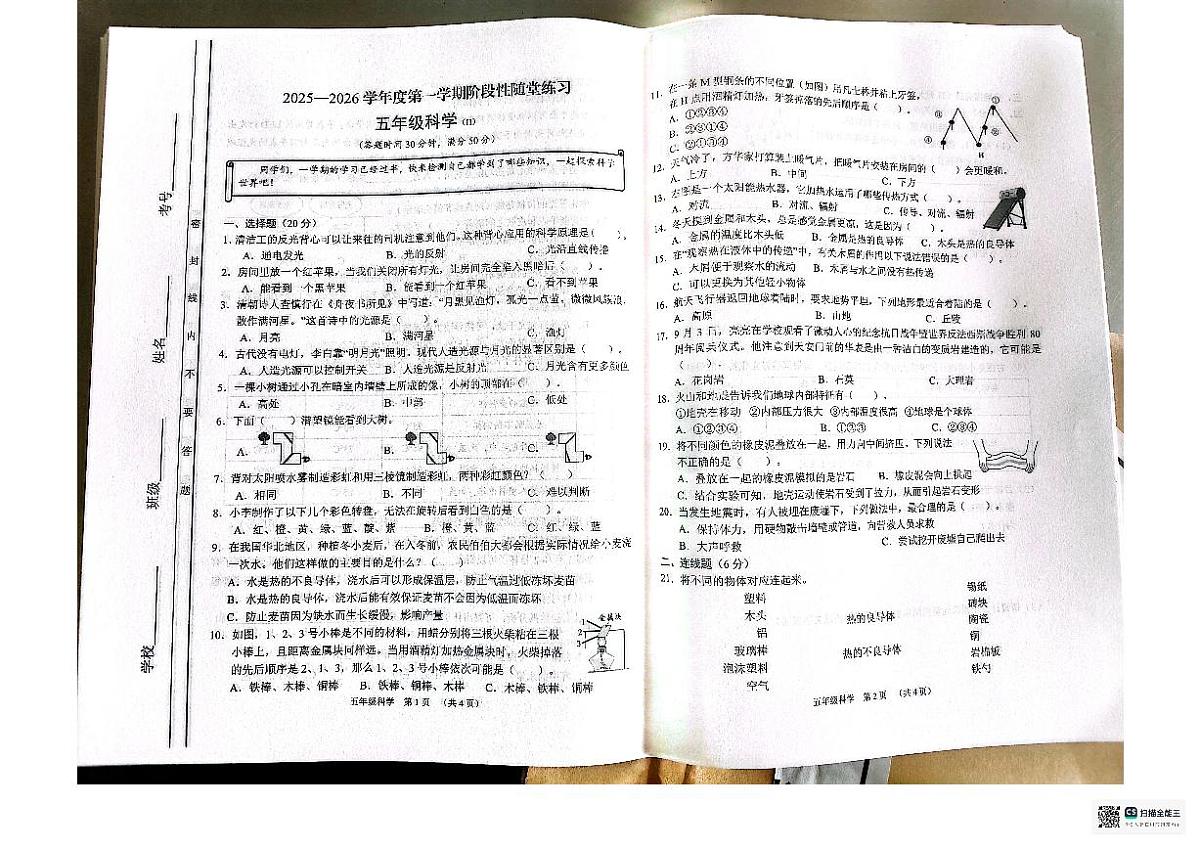 2025—2026 学年度第一学期阶段性随堂练习
五年级科学 (H)
(答题时间 30 分钟,满分 50 分)
同学们,一学期的学习已经过半,快来检测自己都学到了哪些知识,一起探索科学
世界吧!
学校 班级 姓名 考号
密 封 线 内 不 要 答 题
一、选择题(20 分)
1. 清洁工的反光背心可以让来往的司机注意到他们,这种背心应用的科学原理是( )。
A. 通电发光 B. 光的反射 C. 光沿直线传播
2. 房间里放一个红苹果,当我们关闭所有灯光,让房间完全陷入黑暗后( )。
A. 能看到一个黑苹果 B. 能看到一个红苹果 C. 看不到苹果
3. 清朝诗人查慎行在《舟夜书所见》中写道:“月黑见渔灯,孤光一点萤,微微风簇浪,
散作满河星。”这首诗中的光源是( )。
A. 月亮 B. 满河星 C. 渔灯
4. 古代没有电灯,李白靠“明月光”照明,现代人造光源与月光的显著区别是( )。
A. 人造光源可以控制开关 B. 人造光源是反射光 C. 月光含有更多颜色
5. 一棵小树通过小孔在暗室内墙壁上所成的像,小树的顶部在( )。
A. 高处 B. 中部 C. 低处
6. 下面( )潜望镜能看到大树。
A. B. C.
7. 背对太阳喷水雾制造彩虹和用三棱镜制造彩虹,两种彩虹颜色?( )
A. 相同 B. 不同 C. 难以判断
8. 小李制作了以下几个彩色转盘,无法在旋转后看到白色的是( )。
A. 红、橙、黄、绿、蓝、靛、紫 B. 橙、黄、蓝 C. 红、绿、蓝
9. 在我国华北地区,种植冬小麦后,在入冬前,农民伯伯大都会根据实际情况给小麦浇
一次水,他们这样做的主要目的是什么?( )
A. 水是热的不良导体,浇水后可以形成保温层,防止气温过低冻坏麦苗
B. 水是热的良导体,浇水后能有效保证麦苗不会因为低温而冻坏
C. 防止麦苗因为缺水而生长缓慢,影响产量
10. 如图,1、2、3 号小棒是不同的材料,用蜡分别将三根火柴粘在三根
小棒上,且距离金属块同样远。当用酒精灯加热金属块时,火柴掉落
的先后顺序是 2、1、3,那么 1、2、3 号小棒依次可能是( )。
金属块
1
2
3
A. 铁棒、木棒、铜棒 B. 铁棒、铜棒、木棒 C. 木棒、铁棒、铜棒
五年级科学 第 1 页 (共 4 页)
11. 在一条 M 型铜条的不同位置(如图)用凡士林并粘上牙签,
在 H 点用酒精灯加热,牙签掉落的先后顺序是( )。
A. ①②③④
B. ②③①④
C. ②①③④
H
12. 天气冷了,方华家打算装上暖气片,把暖气片安装在房间的( )会更暖和。
A. 上方 B. 中间 C. 下方
13. 右图是一个太阳能热水器,它加热水运用了哪些传热方式( )。
A. 对流 B. 对流、辐射 C. 传导、对流、辐射
14. 冬天摸到金属和木头,总是感觉金属更凉,这是因为( )。
A. 金属的温度比木头低 B. 金属是热的良导体 C. 木头是热的良导体
15. 在“观察热在液体中的传递”中,有关木屑的作用以下说法错误的是( )。
A. 木屑便于观察水的流动 B. 木屑与水之间没有热传递
C. 可以更换为其他轻小物体
16. 航天飞行器返回地球着陆时,要求地势平坦,下列地形最适合着陆的是( )。
A. 高原 B. 山地 C. 丘陵
17. 9 月 3 日,亮亮在学校观看了激动人心的纪念抗日战争暨世界反法西斯战争胜利 80
周年阅兵仪式。他注意到天安门前的华表是由一种洁白的变质岩建造的,它可能是
( )。
A. 花岗岩 B. 石英 C. 大理岩
18. 火山和地震告诉我们地球内部特征有( )。
①地壳在移动 ②内部压力很大 ③内部温度很高 ④地球是个球体
A. ①②③④ B. ①②③ C. ②③④
19. 将不同颜色的橡皮泥叠放在一起,用力向中间挤压,下列说法
不正确的是( )。
A. 叠放在一起的橡皮泥模拟的是岩石 B. 橡皮泥会向上拱起
C. 结合实验可知,地壳运动使岩石受到了拉力,从而引起岩石变形
20. 当发生地震时,有人被埋在废墟下,下列做法中,最合理的是( )。
A. 保持体力,用硬物敲击墙壁或管道,向营救人员求救
B. 大声呼救 C. 尝试挖开废墟自己爬出去
二、连线题(6 分)
21. 将不同的物体对应连起来。
塑料
木头
铝
玻璃棒
泡沫塑料
空气
热的良导体
热的不良导体
锡纸
砖块
陶瓷
铜
岩棉板
铁勺
五年级科学 第 2 页 (共 4 页)
CS 扫描全能王